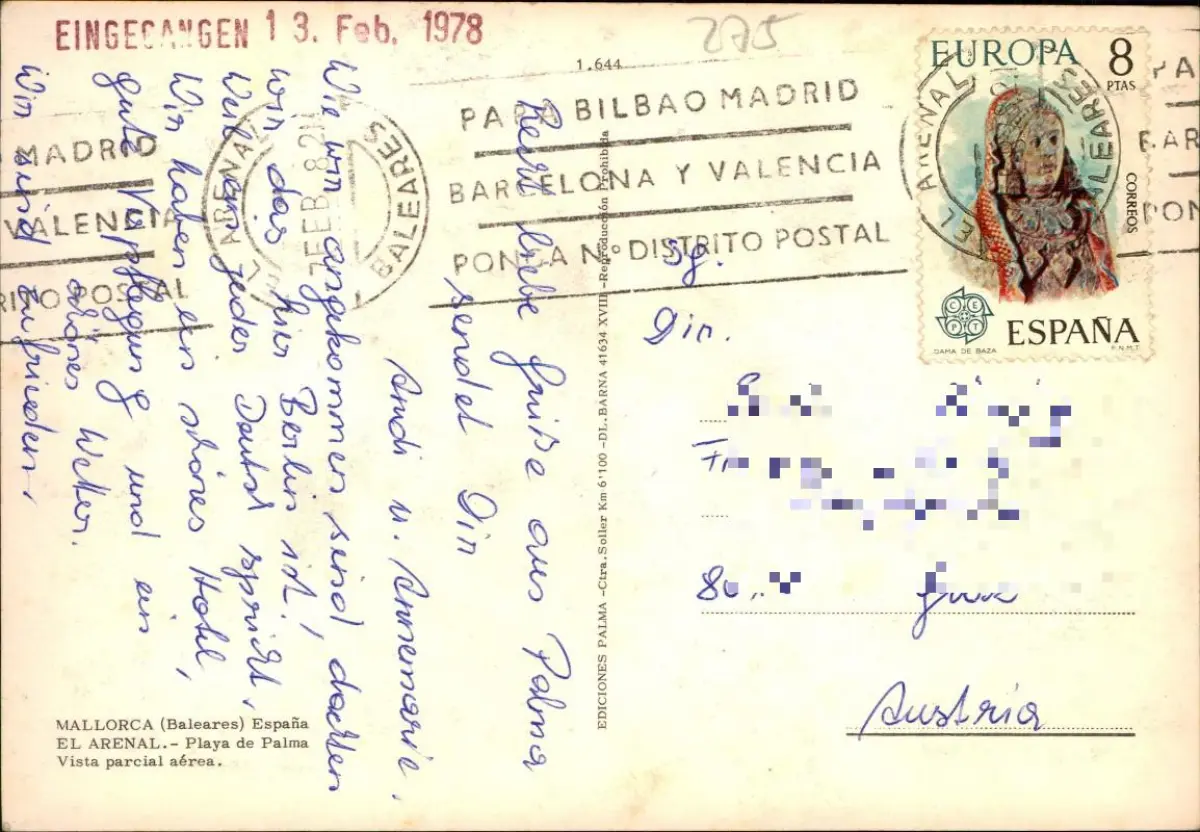 EINGEGANGEN 13. Feb. 1978
275
1.644
PARA BILBAO MADRID
BARCELONA Y VALENCIA
PONGA Nº DISTRITO POSTAL
EL ARENAL
BALEARES
7 FEB 8
MADRID
VALENCIA
RITO POSTAL
EUROPA 8
PTAS
CORREOS
CEPT
ESPAÑA
DAMA DE BAZA
F.N.M.T.
EL ARENAL
BALEARES
Recht liebe Grüße aus Palma
sendet Dir
Andi u. Annemarie.
Wie wir angekommen sind, dachten
wir das hier Berlin ist,
weil jeder Deutsch spricht.
Wir haben ein schönes Hotel,
gute Verpflegung und ein
schönes Wetter.
Wir sind zufrieden.
EDICIONES PALMA -Ctra. Soller Km 6'100 -DL. BARNA 41634 XVIII -Reproducción Prohibida
Sg.
Dir.
Austria
MALLORCA (Baleares) España
EL ARENAL.- Playa de Palma
Vista parcial aérea.